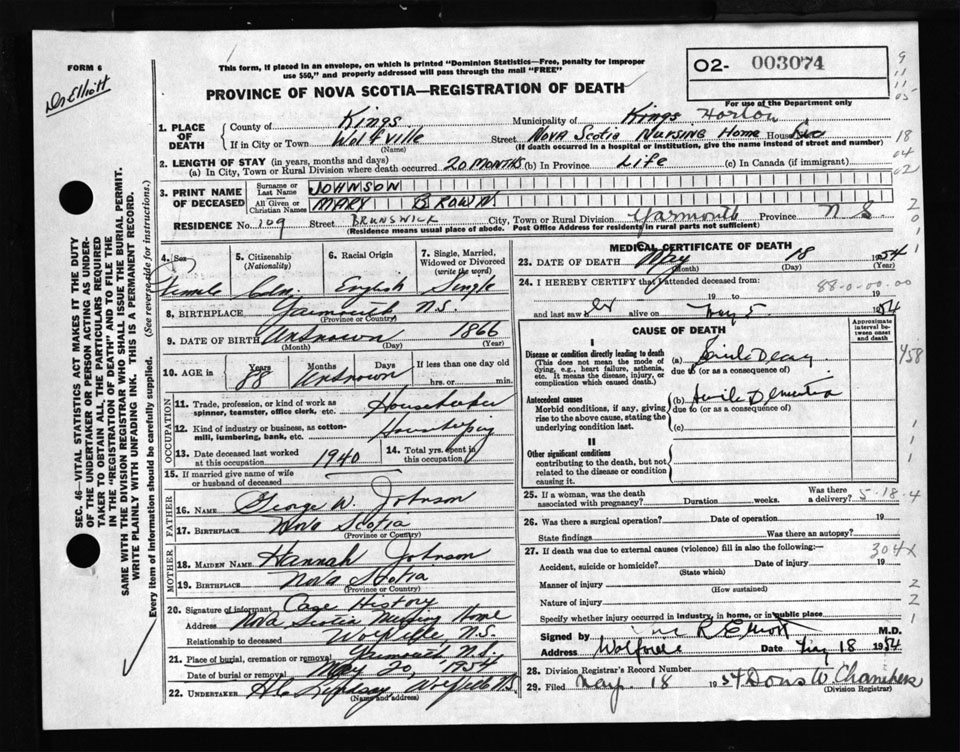 FORM 6
Dr Elliott
This form, if placed in an envelope, on which is printed "Dominion Statistics—Free, penalty for improper
use $50," and properly addressed will pass through the mail "FREE"
PROVINCE OF NOVA SCOTIA—REGISTRATION OF DEATH
O2- 003074
For use of the Department only
1. PLACE OF DEATH
County of Kings Municipality of Kings Horton
If in City or Town Wolfville Street Nova Scotia Nursing Home House No
(Name) (If death occurred in a hospital or institution, give the name instead of street and number)
2. LENGTH OF STAY (in years, months and days)
(a) In City, Town or Rural Division where death occurred 20 MONTHS (b) In Province Life (c) In Canada (if immigrant)
3. PRINT NAME OF DECEASED
Surname or Last Name JOHNSON
All Given or Christian Names MARY BROWN
RESIDENCE No. 109 Street BRUNSWICK City, Town or Rural Division Yarmouth Province N S
(Residence means usual place of abode. Post Office Address for residents in rural parts not sufficient)
4. Sex 5. Citizenship (Nationality) 6. Racial Origin 7. Single, Married, Widowed or Divorced (write the word)
Female Cdn. English Single
8. BIRTHPLACE Yarmouth N.S.
(Province or Country)
9. DATE OF BIRTH Unknown 1866
(Month) (Day) (Year)
10. AGE in Years Months Days If less than one day old
88 Unknown hrs. or min.
OCCUPATION
11. Trade, profession, or kind of work as spinner, teamster, office clerk, etc. Housekeeper
12. Kind of industry or business, as cotton-mill, lumbering, bank, etc. Housekeeping
13. Date deceased last worked at this occupation 1940 14. Total yrs. spent in this occupation
15. If married give name of wife or husband of deceased
FATHER
16. NAME George W. Johnson
17. BIRTHPLACE Nova Scotia
(Province or Country)
MOTHER
18. MAIDEN NAME Hannah Johnson
19. BIRTHPLACE Nova Scotia
(Province or Country)
20. Signature of informant Case History
Address Nova Scotia Nursing Home
Relationship to deceased Wolfville, N.S.
21. Place of burial, cremation or removal Yarmouth N.S.
Date of burial or removal May 20, 1954
22. UNDERTAKER Lindsay, Wolfville N.S.
(Name and address)
MEDICAL CERTIFICATE OF DEATH
23. DATE OF DEATH May 18 1954
(Month) (Day) (Year)
24. I HEREBY CERTIFY that I attended deceased from:
88-0-00-00
19 to 19
and last saw her alive on May 5 1954
CAUSE OF DEATH
Approximate interval between onset and death
I
Disease or condition directly leading to death
(This does not mean the mode of dying, e.g., heart failure, asthenia, etc. It means the disease, injury, or complication which caused death.)
(a) Senile Decay
due to (or as a consequence of)
Antecedent causes
Morbid conditions, if any, giving rise to the above cause, stating the underlying condition last.
(b) Senile Dementia
due to (or as a consequence of)
(c)
II
Other significant conditions
contributing to the death, but not related to the disease or condition causing it.
458
25. If a woman, was the death associated with pregnancy? Duration weeks. Was there a delivery?
5-18-4
26. Was there a surgical operation? Date of operation 19
State findings Was there an autopsy?
27. If death was due to external causes (violence) fill in also the following:—
304x
Accident, suicide or homicide? Date of injury 19
(State which)
Manner of injury
(How sustained)
Nature of injury
Specify whether injury occurred in industry, in home, or in public place
Signed by R Elliott M.D.
Address Wolfville Date May 18 1954
28. Division Registrar's Record Number
29. Filed May 18 1954 Doris W Chambers
(Division Registrar)
SEC. 46—VITAL STATISTICS ACT MAKES IT THE DUTY
OF THE UNDERTAKER OR PERSON ACTING AS UNDER-
TAKER TO OBTAIN ALL THE PARTICULARS REQUIRED
IN THE "REGISTRATION OF DEATH" AND TO FILE THE
SAME WITH THE DIVISION REGISTRAR WHO SHALL ISSUE THE BURIAL PERMIT.
WRITE PLAINLY WITH UNFADING INK. THIS IS A PERMANENT RECORD.
Every item of information should be carefully supplied. (See reverse side for instructions.)
9
11
11
05
18
04
02
2
0
1
1
1
1
2
2
1